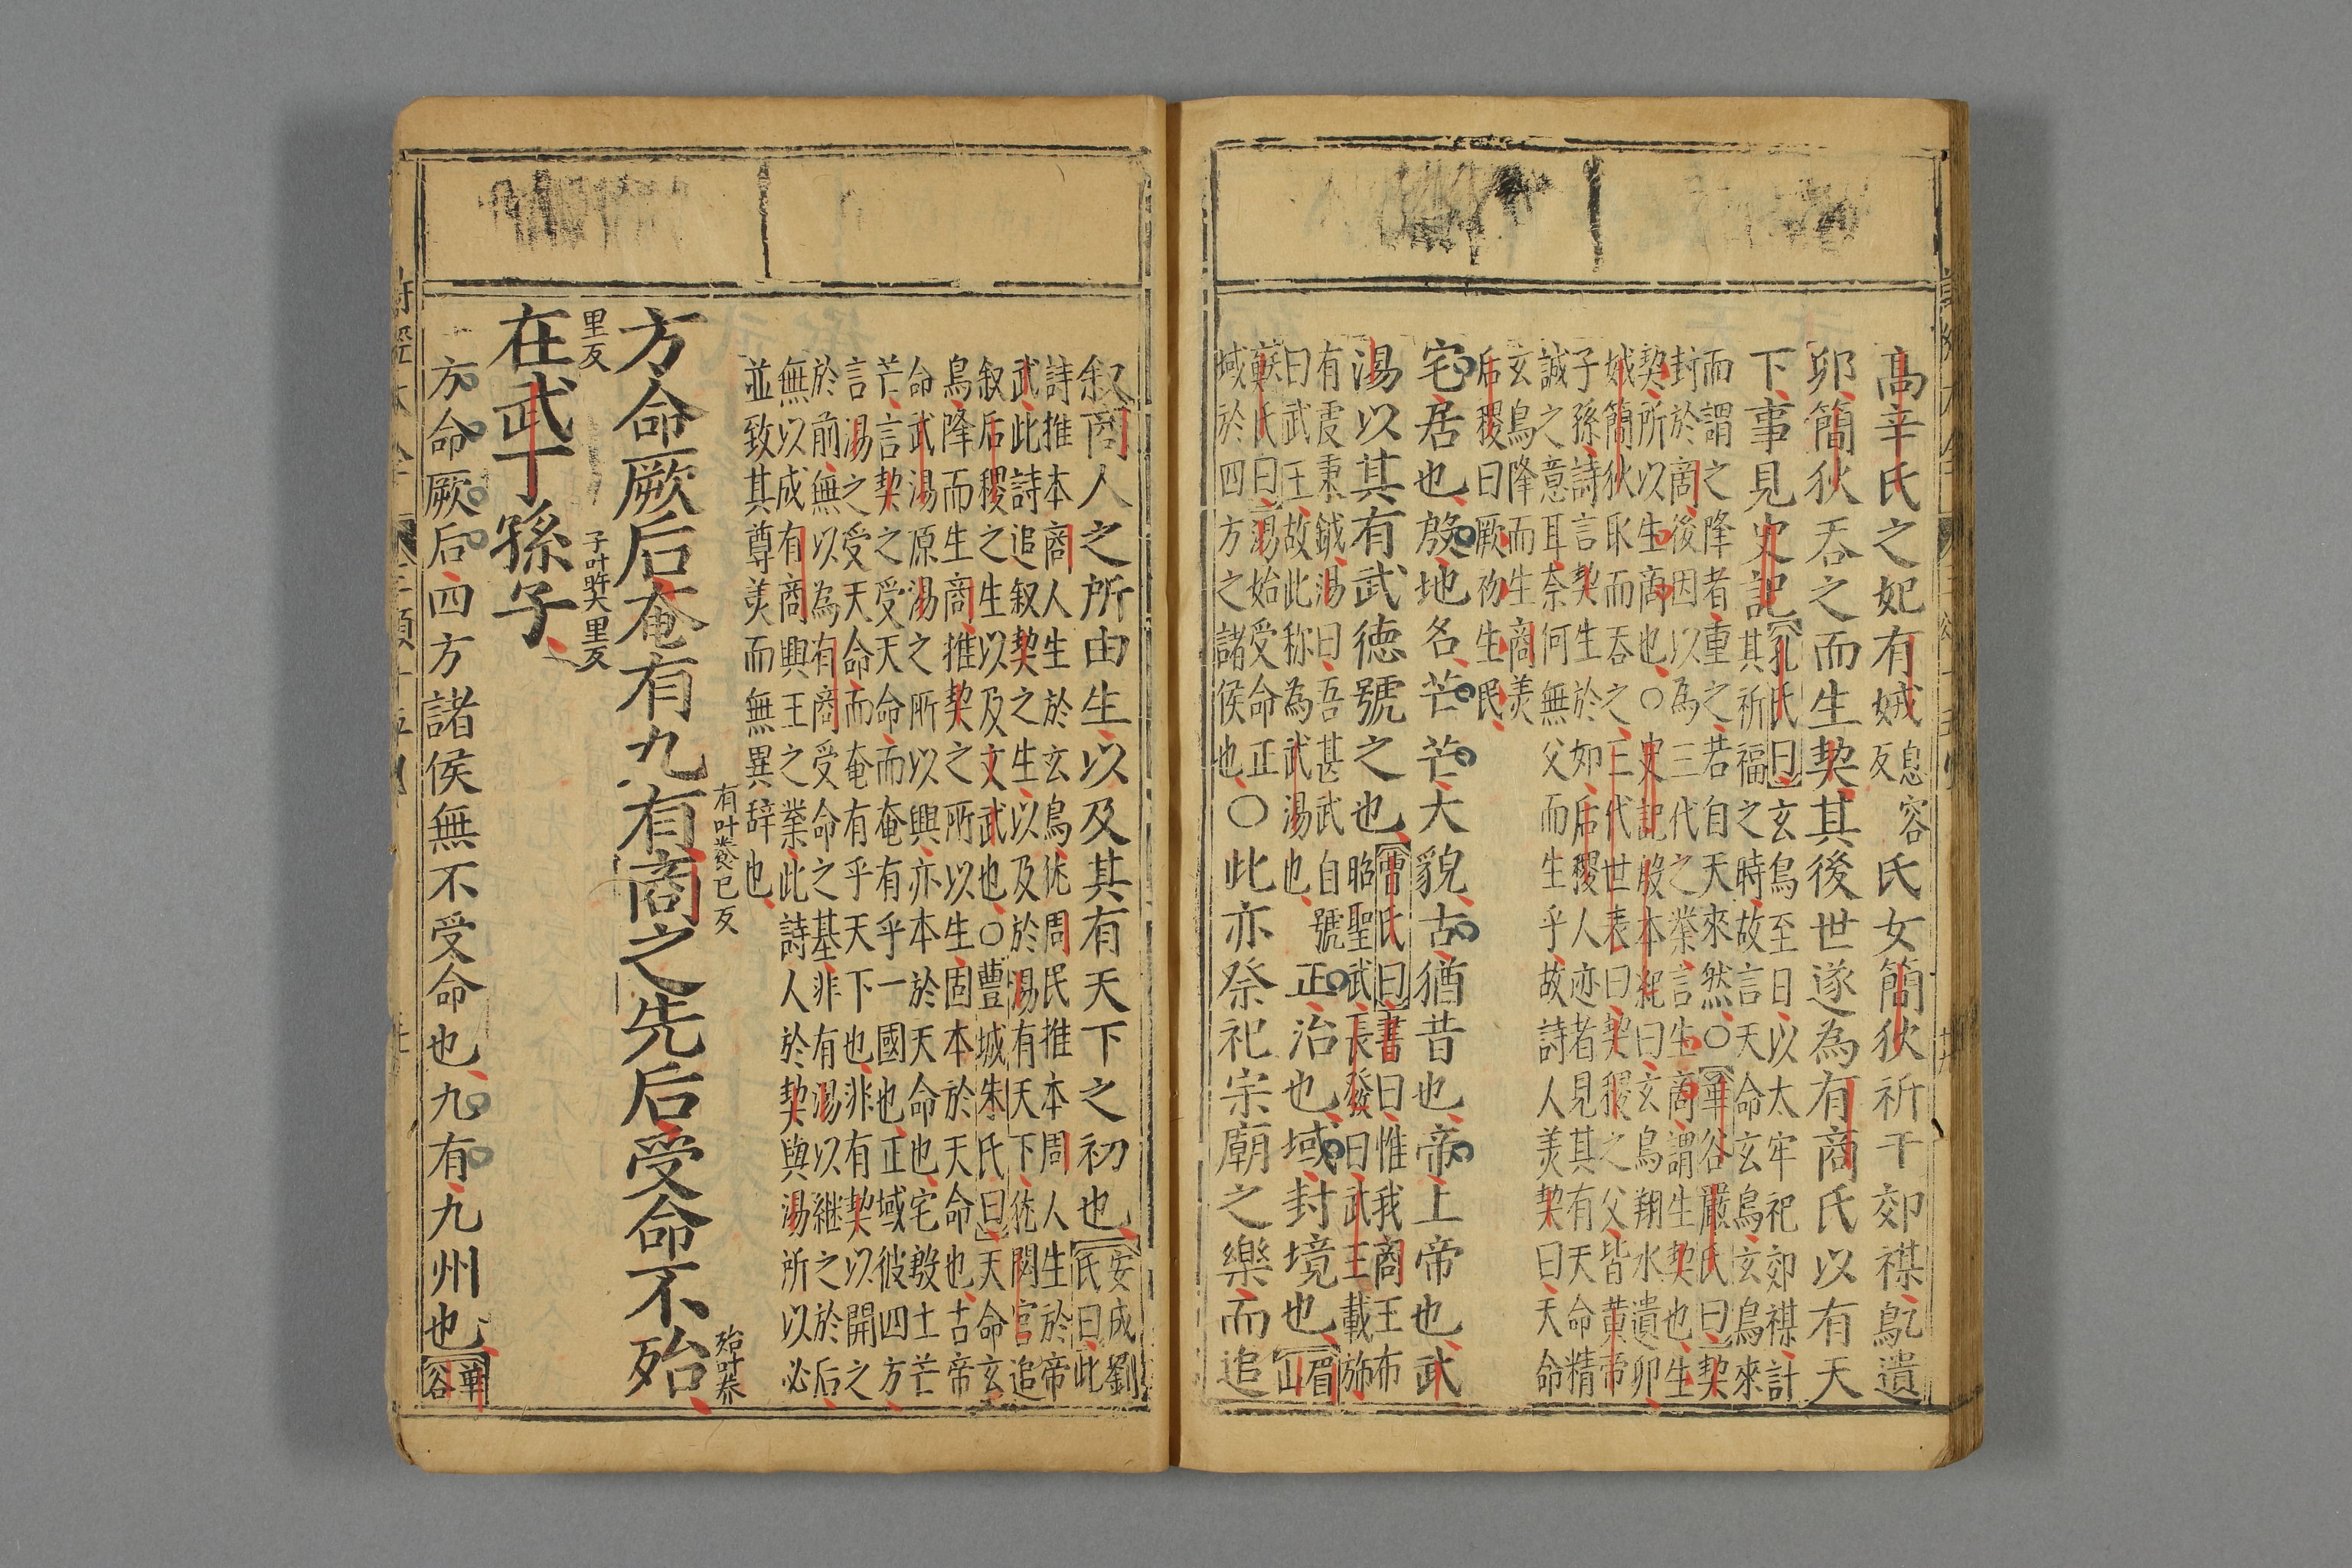 高辛氏之妃有娀息容反氏女簡狄祈于郊禖鳦遺
卵簡狄吞之而生契其後世遂為有商氏以有天
下事見史記
孔氏曰玄鳥至日以太牢祀郊禖計
其祈福之時故言天命玄鳥玄鳥來
而謂之降者重之若自天來然○華谷嚴氏曰契
封於商後因以為三代之業言生商謂生契也生
契所以生商也○史記殷本紀曰玄鳥翔水遺卵
娀簡狄取而吞之三代世表曰契稷之父皆黃帝
子孫詩言契生於如后稷人亦者見其有天命精
誠之意耳奈何無父而生乎故詩人美契曰天命
玄鳥降而生商美
后稷曰厥初生民
宅居也殷地名芒芒大貌古猶昔也帝上帝也武
湯以其有武德號之也
曹氏曰書曰惟我商王布
昭聖武長發曰武王載斾
有虔秉鉞湯曰吾甚武自號
曰武王故此称為武湯也
正治也域封境也眉山
蘇氏曰湯始受命正
域於四方之諸侯也
○此亦祭祀宗廟之樂而追
叙商人之所由生以及其有天下之初也
安成劉
氏曰此
詩推本商人生於玄鳥猶周民推本周人生於帝
武此詩追叙契之生以及於湯有天下猶閟宮追
叙后稷之生以及文武也○豐城朱氏曰天命玄
鳥降而生商推契之所以生固本於天命也古帝
命武湯原湯之所以興亦本於天命也宅殷土芒
芒言契之受天命而奄有乎一國也正域彼四方
言湯之受天命而奄有乎天下也非有契以開之
於前無以為有商受命之基非有湯以継之於后
無以成有商興王之業此詩人於契與湯所以必
並致其尊美而無異辞也
方命厥后奄有九有有叶已反商之先后受命不殆殆叶養
里反在武丁孫子子叶獎里反
方命厥后四方諸侯無不受命也九有九州也華谷